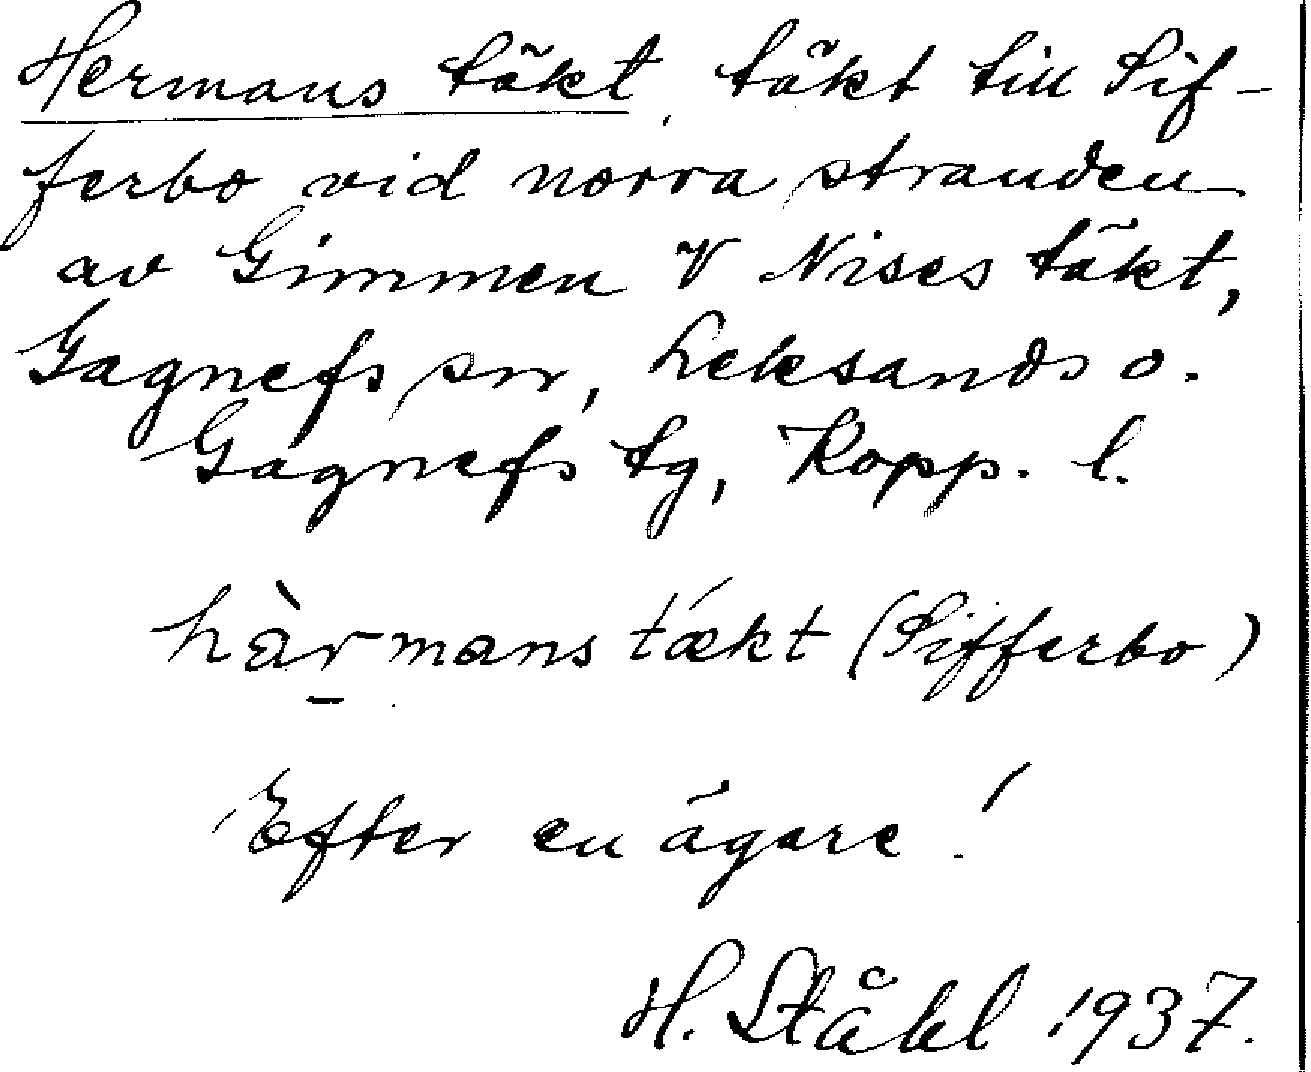 Hermans täkt, täkt till Sif-
ferbo vid norra stranden
av Gimmen V Nises täkt,
Gagnefs sn, Leksands o.
Gagnefs tg, Kopp. l.
hàr̠mans tǽkt (Sifferbo)
Efter en ägare!
H. Ståhl 1937.